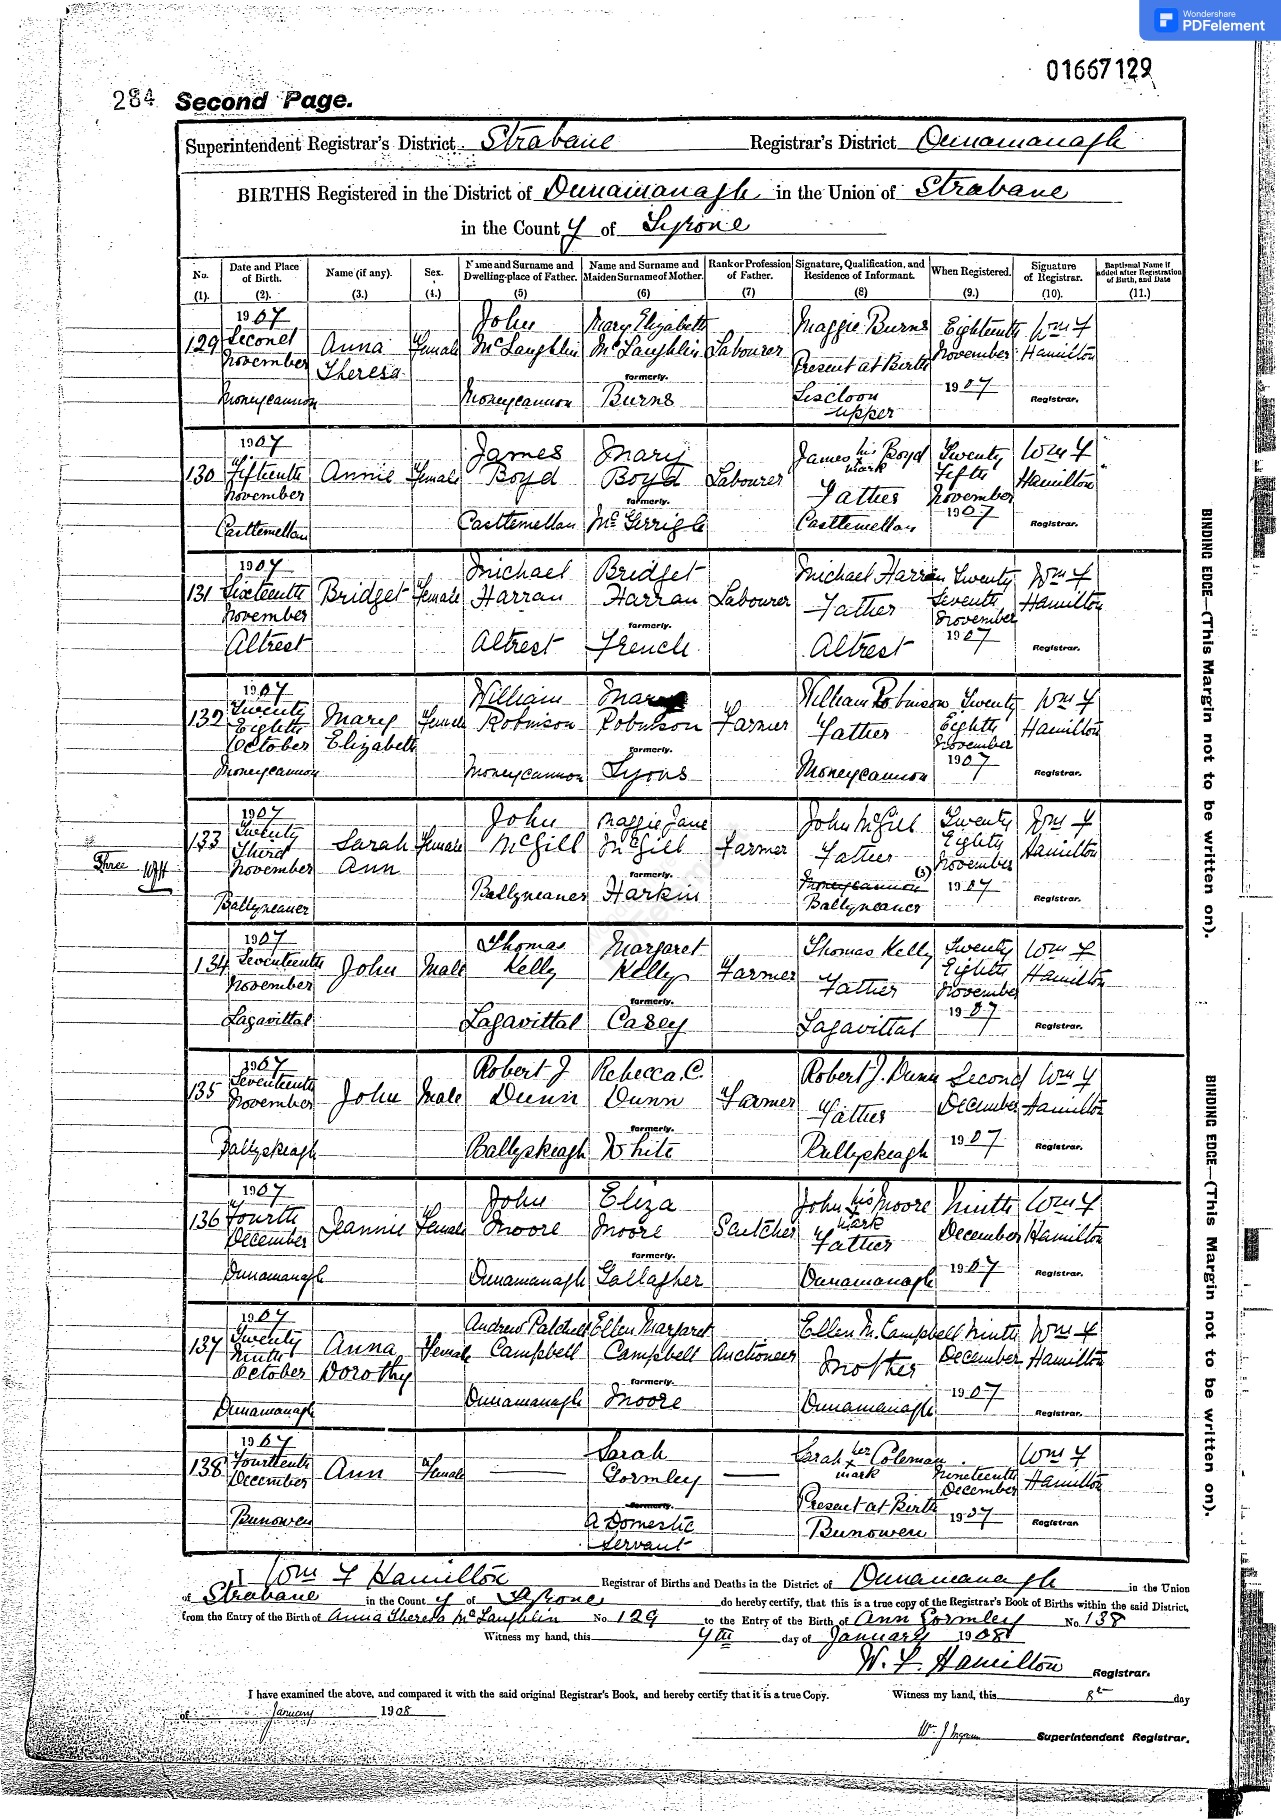 Wondershare
PDFelement
01667129
284 Second Page.
Superintendent Registrar's District Strabane Registrar's District Dunamanagh
BIRTHS Registered in the District of Dunamanagh in the Union of Strabane
in the County of Tyrone
No. (1). Date and Place of Birth. (2). Name (if any). (3.) Sex. (4.) Name and Surname and Dwelling-place of Father. (5) Name and Surname and Maiden Surname of Mother. (6) Rank or Profession of Father. (7) Signature, Qualification, and Residence of Informant. (8) When Registered. (9.) Signature of Registrar. (10). Baptismal Name if added after Registration of Birth, and Date (11.)
129 1907 Second November Moneycannon Anna Theresa Female John McLaughlin Moneycannon Mary Elizabeth McLaughlin formerly. Burns Labourer Maggie Burns Present at Birth Liscloon upper Eighteenth November 1907 Wm F Hamilton Registrar.
130 1907 Fifteenth November Castlemellan Annie Female James Boyd Castlemellan Mary Boyd formerly. McGerrigle Labourer James his x mark Boyd Father Castlemellan Twenty Fifth November 1907 Wm F Hamilton Registrar.
131 1907 Sixteenth November Altrest Bridget Female Michael Harran Altrest Bridget Harran formerly. French Labourer Michael Harran Father Altrest Twenty Seventh November 1907 Wm F Hamilton Registrar.
132 1907 Twenty Eighth October Moneycannon Mary Elizabeth Female William Robinson Moneycannon Mary Robinson formerly. Lyons Farmer William Robinson Father Moneycannon Twenty Eighth November 1907 Wm F Hamilton Registrar.
Three WFH
133 1907 Twenty Third November Ballyneaner Sarah Ann Female John McGill Ballyneaner Maggie Jane McGill formerly. Harkin Farmer John McGill Father Moneycannon (3) Ballyneaner Twenty Eighth November 1907 Wm F Hamilton Registrar.
134 1907 Seventeenth November Lagavittal John Male Thomas Kelly Lagavittal Margaret Kelly formerly. Casey Farmer Thomas Kelly Father Lagavittal Twenty Eighth November 1907 Wm F Hamilton Registrar.
135 1907 Seventeenth November Ballyskeagh John Male Robert J Dunn Ballyskeagh Rebecca. C. Dunn formerly. White Farmer Robert J. Dunn Father Ballyskeagh Second December 1907 Wm F Hamilton Registrar.
136 1907 Fourth December Dunamanagh Jeannie Female John Moore Dunamanagh Eliza Moore formerly. Gallagher Scutcher John his x mark Moore Father Dunamanagh Ninth December 1907 Wm F Hamilton Registrar.
137 1907 Twenty Ninth October Dunamanagh Anna Dorothy Female Andrew Patchell Campbell Dunamanagh Ellen Margaret Campbell formerly. Moore Auctioneer Ellen M. Campbell Mother Dunamanagh Ninth December 1907 Wm F Hamilton Registrar.
138 1907 Fourteenth December Bunowen Ann Female Sarah Gormley formerly. A Domestic Servant Sarah her x mark Coleman Present at Birth Bunowen Nineteenth December 1907 Wm F Hamilton Registrar
I Wm F Hamilton Registrar of Births and Deaths in the District of Dunamanagh in the Union
of Strabane in the County of Tyrone do hereby certify, that this is a true copy of the Registrar's Book of Births within the said District,
from the Entry of the Birth of Anna Theresa McLaughlin No. 129 to the Entry of the Birth of Ann Gormley No. 138
Witness my hand, this 7th day of January 1908
W. F. Hamilton Registrar.
I have examined the above, and compared it with the said original Registrar's Book, and hereby certify that it is a true Copy. Witness my hand, this 8th day
of January 1908
Wm J Superintendent Registrar.
BINDING EDGE—(This Margin not to be written on).
BINDING EDGE—(This Margin not to be written on).